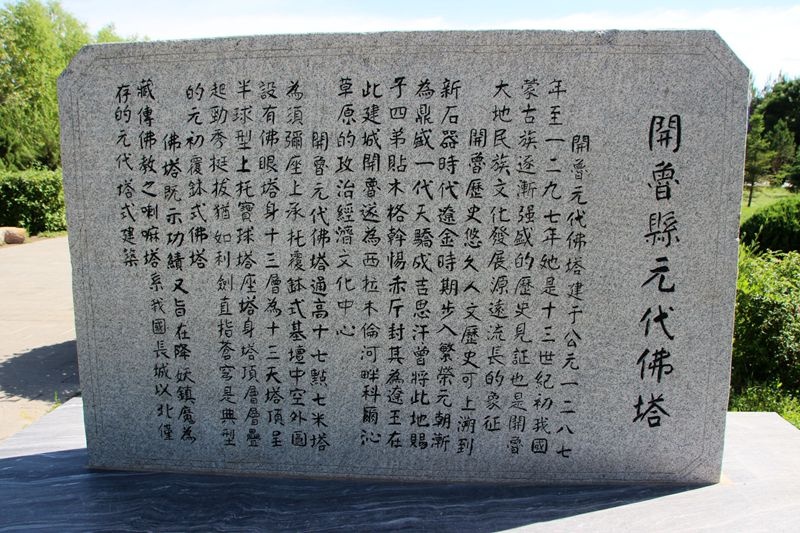 開魯縣元代佛塔
開魯元代佛塔建于公元一二八七
年至一二九七年她是十三世紀初我國
蒙古族逐漸强盛的歷史見証也是開魯
大地民族文化發展源遠流長的象征
開魯歷史悠久人文歷史可上溯到
新石器時代遼金時期步入繁榮元朝漸
為鼎盛一代天驕成吉思汗曾將此地賜
予四弟貼木格幹惕赤斤封其為遼王在
此建城開魯遂為西拉木倫河畔科爾沁
草原的政治經濟文化中心
開魯元代佛塔通高十七點七米塔
為須彌座上承托覆缽式基壇中空外圓
設有佛眼塔身十三層為十三天塔頂呈
半球型上托寶球塔座塔身塔頂層層疊
起勁秀挺拔猶如利劍直指蒼穹是典型
的元初覆缽式佛塔
佛塔既示功績又旨在降妖鎮魔為
藏傳佛教之喇嘛塔系我國長城以北僅
存的元代塔式建築